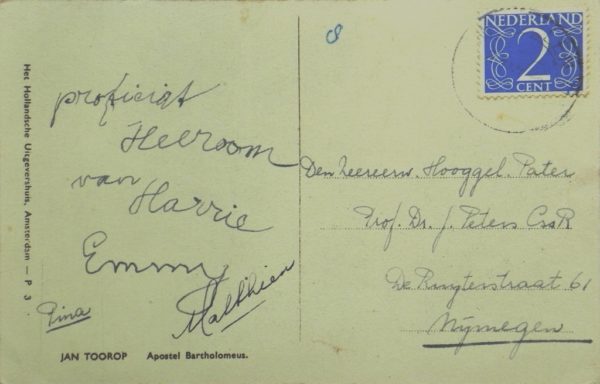 Het Hollandsche Uitgevershuis, Amsterdam — P 3
proficiat
Heeroom
van
Harrie
Emmy
Matthieu
Pina
JAN TOOROP Apostel Bartholomeus.
8
NEDERLAND
2
CENT
Den Zeereerw. Hooggel. Pater
Prof. Dr. J. Peters CssR
De Ruyterstraat 61
Nijmegen